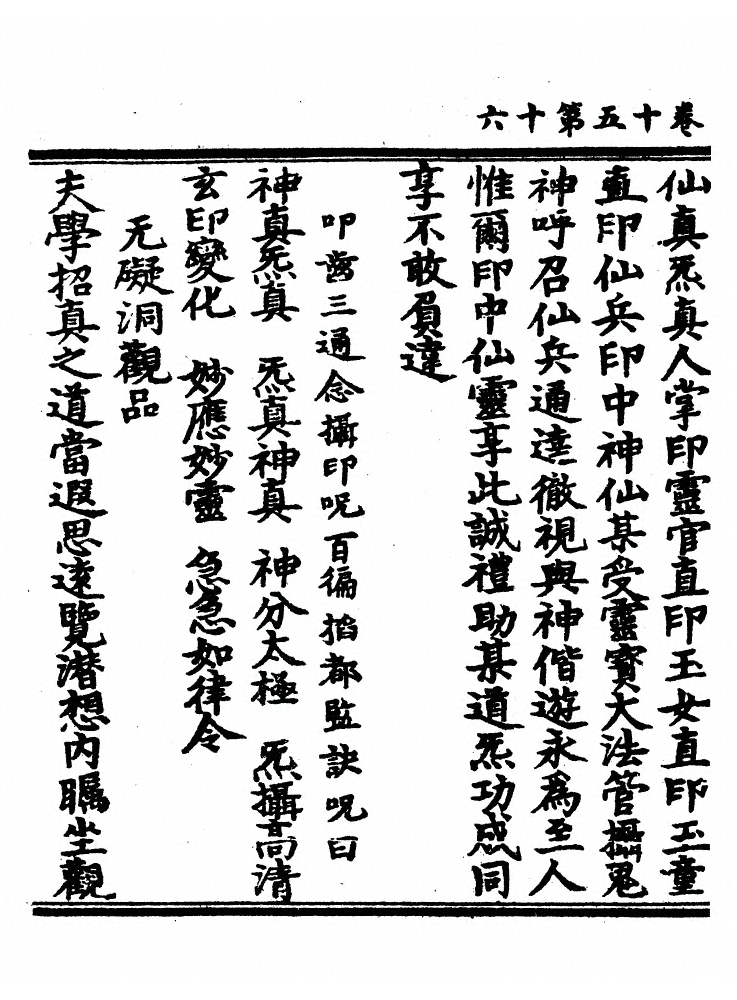 卷十五第十六
仙真炁真人掌印靈官直印玉女直印玉童
直印仙兵印中神仙某受靈寶大法管攝鬼
神呼召仙兵通達徹視與神偕遊永為至人
惟爾印中仙靈享此誠禮助某道炁功成同
享不敢負違
叩齒三通念攝印呪百徧掐都監訣呪曰
神真炁真　炁真神真　神分太極　炁攝高清
玄印變化　妙應妙靈　急急如律令
无礙洞觀品
夫學招真之道當遐思遠覽潛想內矚坐觀